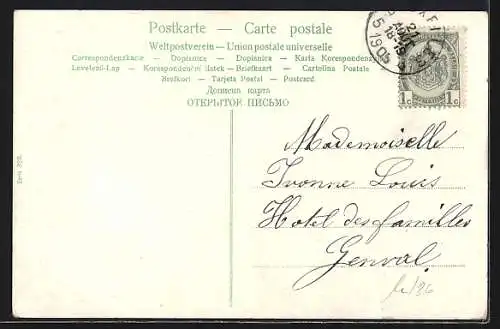 Postkarte — Carte postale
Weltpostverein — Union postale universelle
Correspondenzkarte — Dopisnica — Dopisnice — Karta Korespondenz
Levelezö-Lap — Korespondenční lístek — Briefkaart — Cartolina Postale
Brefkort — Tarjeta Postal — Postcard
Дописна карта
ОТКРЫТОЕ ПИСЬМО
21
AOUT
18-19
1905
1c 1c
Mademoiselle
Yvonne Louis
Hotel des familles
Genval
Serie 258.